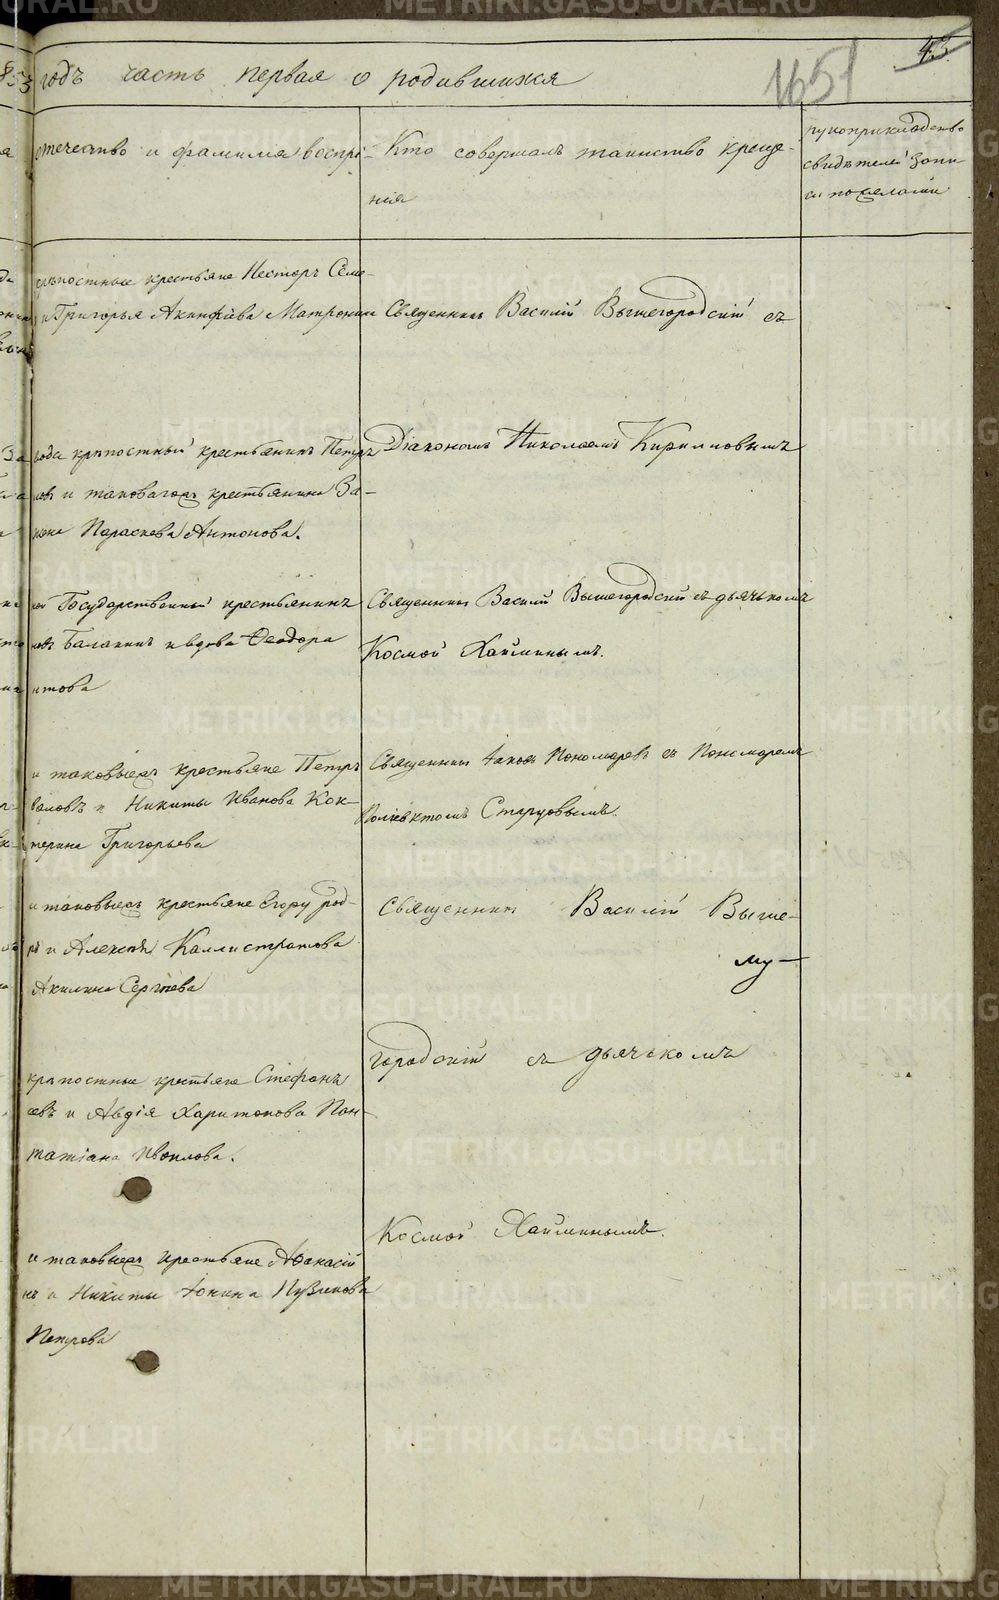 853 годъ часть первая о родившихся
1651
43
отечество и фамилія воспрі-
Кто совершалъ таинство креще-
нія
рукоприкладство
свидѣтелей запи
си по желанію
крѣпостные крестьяне Несторъ Семе-
и Григорья Акинфіева Матрона
Священникъ Василій Вышегородскій съ
года крѣпостный крестьянинъ Петръ
ловъ и таковагожъ крестьянина За-
жена Параскева Антонова.
Діакономъ Николаемъ Кириловымъ
Государственный крестьянинъ
новъ Балакинъ и вдова Ѳеодора
итова
Священникъ Василій Вышегородскій съ дьячькомъ
Космой Хайминымъ.
и таковыежъ крестьяне Петръ
валовъ и Никиты Иванова Кок-
терина Григорьева
Священникъ Іаковъ Пономаревъ съ Пономаремъ
Поліевктомъ Старцовымъ.
и таковыежъ крестьяне Егоръ род-
въ и Алексѣя Каллистратова
Акилина Сергѣева
Священникъ Василій Выше-
му-
городскій съ дьячькомъ
крѣпостные крестьяне Стефанъ
евъ и Авдія Харитонова Пан-
Татіана Ивойлова.
Космой Хайминымъ.
и таковыежъ крестьяне Аѳанасій
нъ и Никиты Іонина Пузикова
Петрова
METRIKI.GASO-URAL.RU